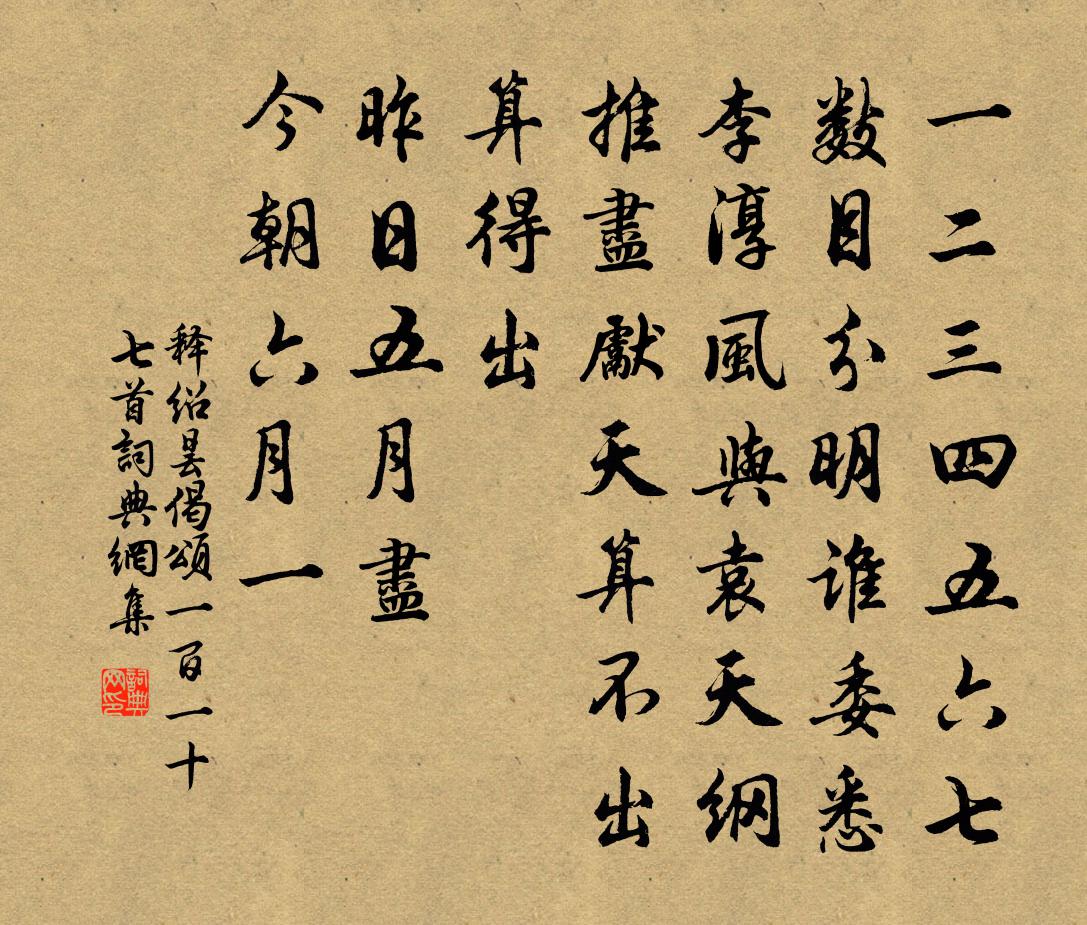 一二三四五六七
數目分明誰委悉
李淳風與袁天綱
推盡獻天算不出
算得出
昨日五月盡
今朝六月一
释绍昙偈頌一百一十
七首詞典網集
詞典网印